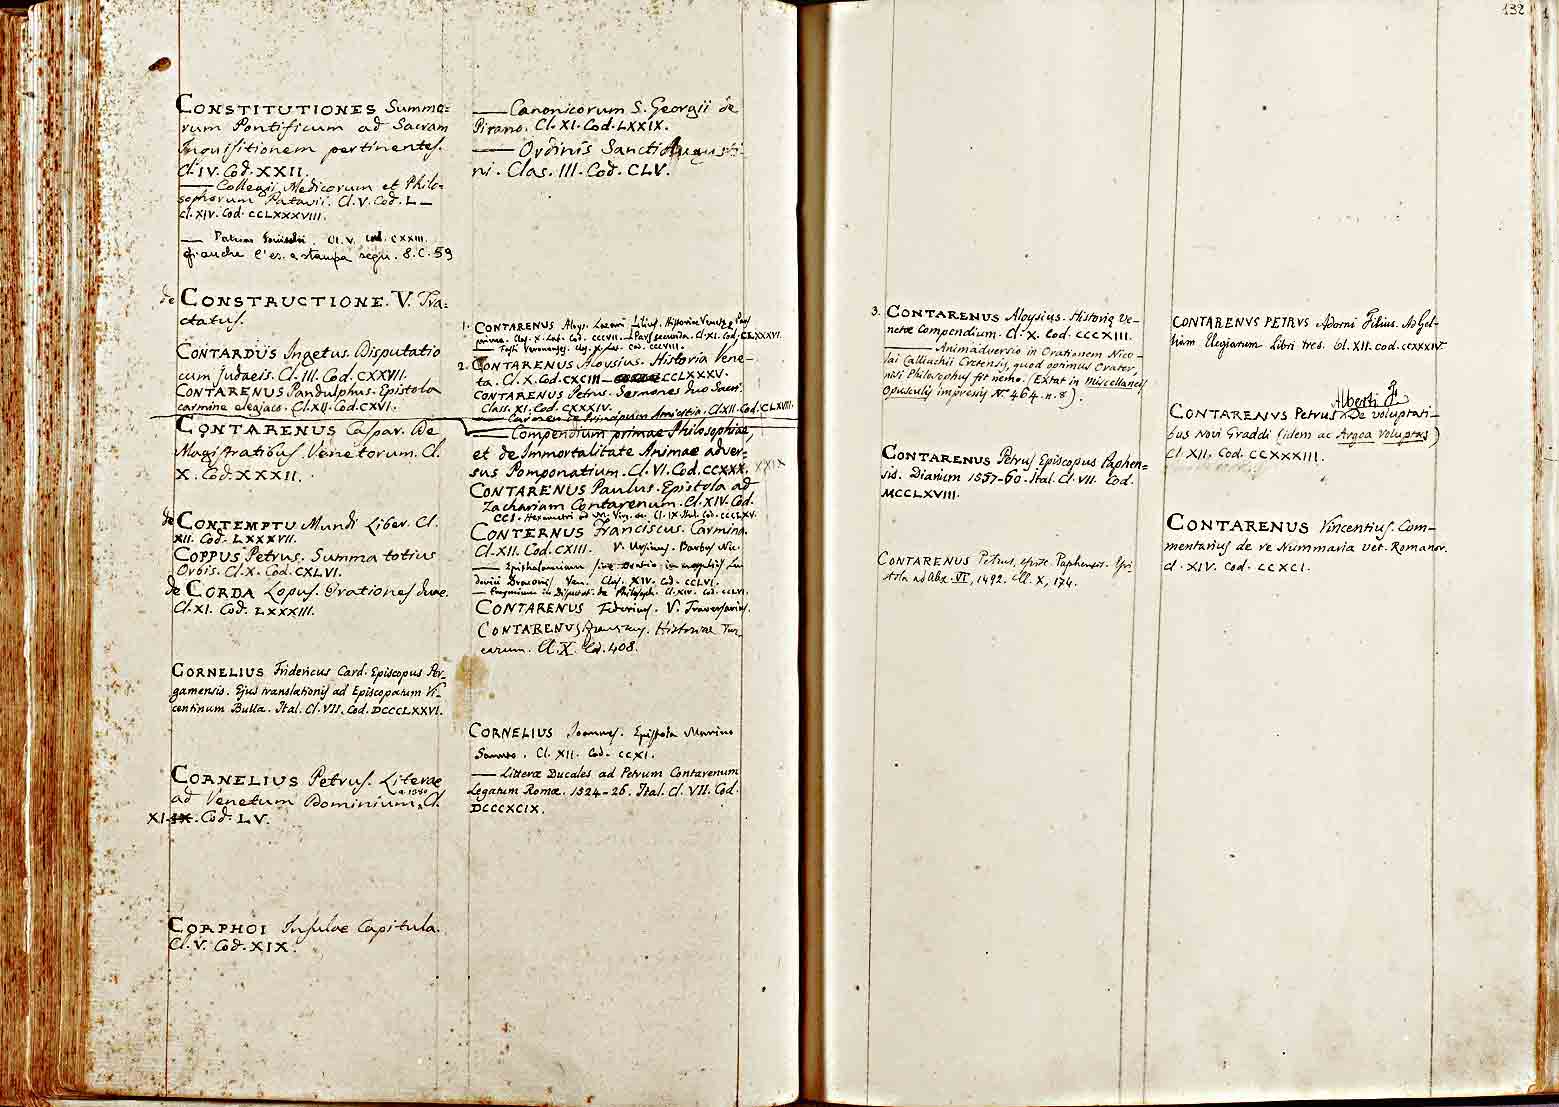 CONSTITUTIONES Summo=
rum Pontificum ad Sacram
Inquisitionem pertinentes.
Cl. IV. Cod. XXII.
— Collegii Medicorum et Philo-
sophorum Patavii. Cl. V. Cod. L —
Cl. XIV. Cod. CCLXXXVIII.
— Patrum Cl. V. cod. CXXIII.
è l'es. a stampa segn. 8. C. 59
de CONSTRUCTIONE. V. Tra-
ctatus.
CONTARDUS Ingetus. Disputatio
cum Judaeis. Cl. III. Cod. CXXVII.
CONTARENUS Pandulphus. Epistola
carmine elegiaco. Cl. XII. Cod. CXVI.
CONTARENUS Caspar. De
Magistratibus Venetorum. Cl.
X. Cod. XXXII.
de CONTEMPTU Mundi Liber. Cl.
XII. Cod. LXXXVII.
COPPUS Petrus. Summa totius
Orbis. Cl. X. Cod. CXLVI.
de CORDA Lopus. Orationes duae.
Cl. XI. Cod. LXXXIII.
CORNELIUS Fridericus Card. Episcopus Per-
gamensis. Ejus translationis ad Episcopatum Vi-
centinum Bulla. Ital. Cl. VII. Cod. DCCCLXXVI.
CORNELIUS Petrus. Literae
ad Venetum Dominium a 1380. Cl.
XI. IX. Cod. LV.
CORPHOI Insulae Capitula.
Cl. V. Cod. XIX.
— Canonicorum S. Georgii de
Pirano. Cl. XI. Cod. LXXIX.
— Ordinis Sancti Augusti-
ni. Clas. III. Cod. CLV.
1. CONTARENUS Aloys. Lazari Filius. Historiae Venetae Pars
prima. Clas. X. Lat. Cod. CCCVII. — Pars secunda. Cl. XI. Cod. CLXXXVI.
— Fasti Veronenses. Clas. X. Lat. Cod. CCCVIII.
2. CONTARENUS Aloysius. Historia Vene-
ta. Cl. X. Cod. CXCIII — CCLXXXV.
CONTARENUS Petrus. Sermones duo Sacri.
Class. XI. Cod. CXXXIV.
— Carmen de Principum Amicitia. Cl. XII. Cod. CLXVIII.
— Compendium primae Philosophiae,
et de Immortalitate Animae adver-
sus Pomponatium. Cl. VI. Cod. CCXXX. XXIX
CONTARENUS Paulus. Epistola ad
Zachariam Contarenum. Cl. XIV. Cod.
CCI. Hexametri ad M. Vin. Cl. IX. Ital. Cod. CCCLXV.
CONTERNUS Franciscus. Carmina.
Cl. XII. Cod. CXIII. V. Ursinus. Barbus Nic.
— Epithalamium sive oratio in nuptiis Lu
dovici Draconis Ven. Clas. XIV. Cod. CCLVI.
— in Disputat. de Philosoph. Cl. XIV. Cod. CCLVI.
CONTARENUS Federicus. V. Traversarius.
CONTARENUS Franciscus. Historiae Tus-
carum. Cl. X. Cod. 408.
CORNELIUS Joannes. Epistola Marino
Sanuto. Cl. XII. Cod. CCXI.
— Litterae Ducales ad Petrum Contarenum
Legatum Romae. 1524-26. Ital. Cl. VII. Cod.
DCCCXCIX.
132
3. CONTARENUS Aloysius. Historiae Ve-
netae Compendium. Cl. X. Cod. CCCXIII.
— Animadversio in Orationem Nico-
lai Calliachii Cretensis, quod optimus Orator,
nisi Philosophus fit nemo. (Extat in Miscellaneis
Opusculis impressis N.° 464. n. 8).
CONTARENUS Petrus Episcopus Paphen=
sis. Diarium 1557-60. Ital. Cl. VII. Cod.
MCCLXVIII.
CONTARENUS Petrus, episc. Paphensis. Epi-
stola ad Alex. VI, 1492. Cl. X, 174.
CONTARENVS PETRVS Adorni Filius. Ad Gel-
liam Elegiarum Libri tres. Cl. XII. Cod. CCXXXIV.
Alberti F.
CONTARENVS Petrus De voluptati-
bus Novi Graddi (idem ac Argoa Voluptas)
Cl. XII. Cod. CCXXXIII.
CONTARENUS Vincentius. Com-
mentarius de re Nummaria vet. Romanor.
Cl. XIV. Cod. CCXCI.